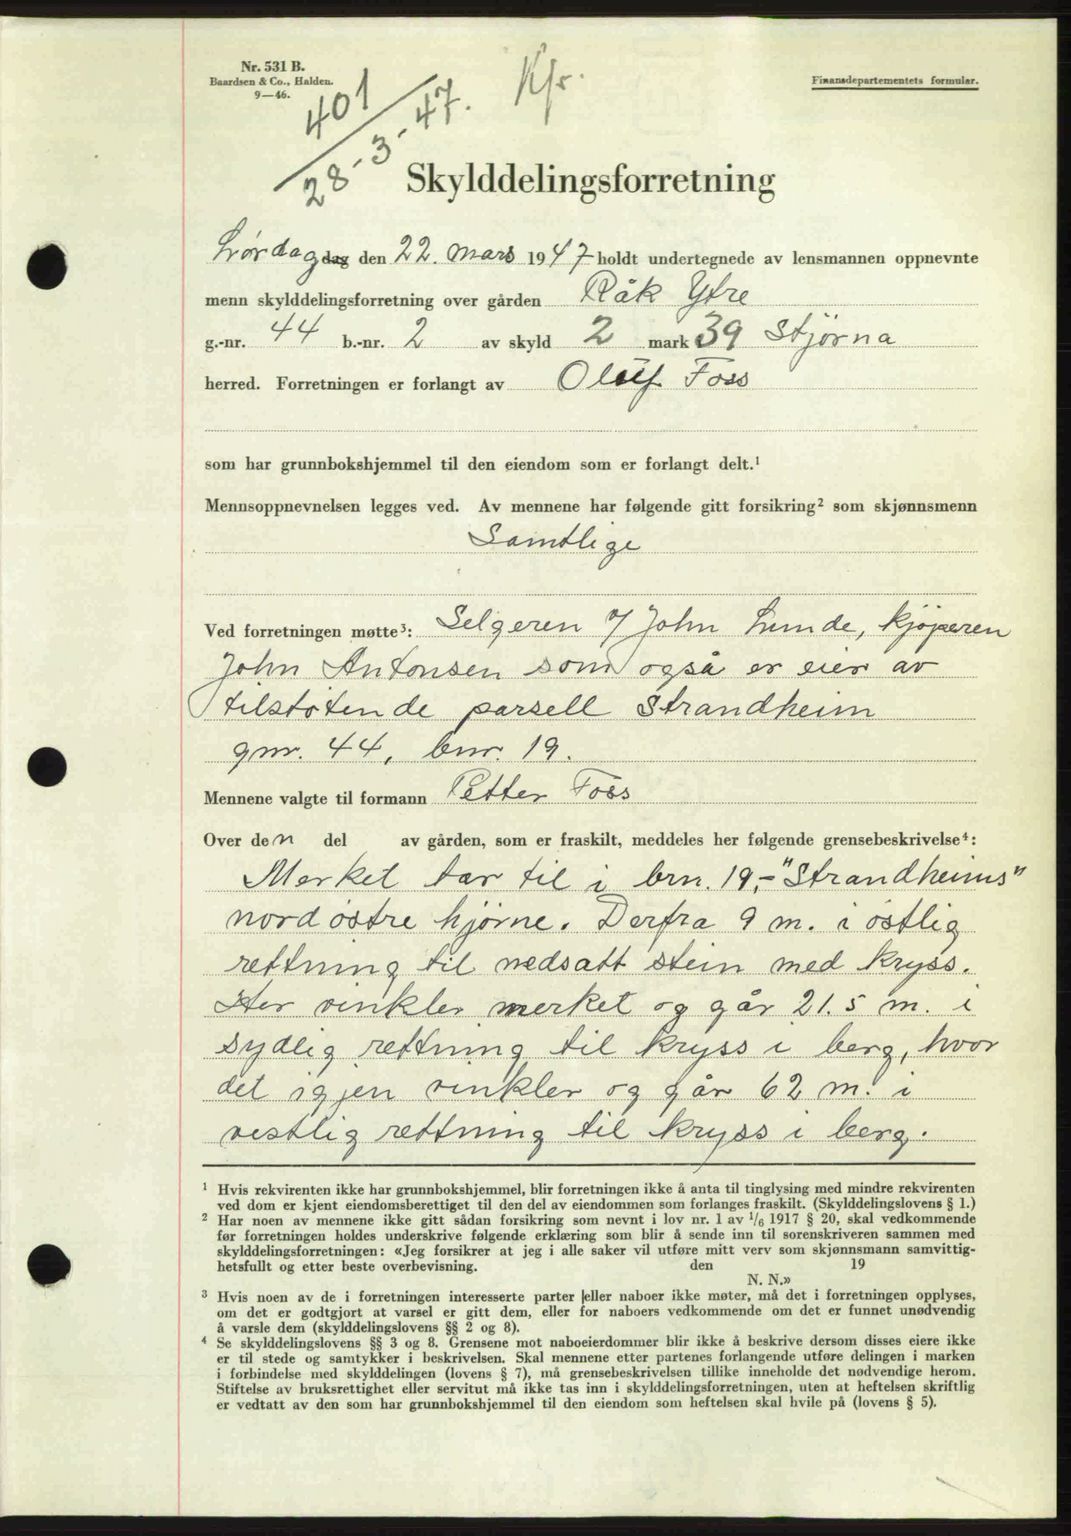 Nr. 531 B.
Baardsen & Co., Halden.
9—46.
Finansdepartementets formular.
401
28-3-47.
Kfr.
Skylddelingsforretning
Lørdag dag den 22. mars 1947 holdt undertegnede av lensmannen oppnevnte
menn skylddelingsforretning over gården Råk Ytre
g.-nr. 44 b.-nr. 2 av skyld 2 mark 39 Stjørna
herred. Forretningen er forlangt av Oluf Foss
som har grunnbokshjemmel til den eiendom som er forlangt delt.¹
Mennsoppnevnelsen legges ved. Av mennene har følgende gitt forsikring² som skjønnsmenn
Samtlige
Ved forretningen møtte³: Selgeren v/ John Lunde, kjøperen
John Antonsen som også er eier av
tilstøtende parsell Strandheim
gnr. 44, bnr. 19.
Mennene valgte til formann Petter Foss
Over den del av gården, som er fraskilt, meddeles her følgende grensebeskrivelse⁴:
Merket tar til i brn. 19,- "Strandheims"
nordøstre hjørne. Derfra 9 m. i østlig
rettning til nedsatt stein med kryss.
Her vinkler merket og går 21.5 m. i
sydlig rettning til kryss i berg, hvor
det igjen vinkler og går 62 m. i
vestlig rettning til kryss i berg.
¹ Hvis rekvirenten ikke har grunnbokshjemmel, blir forretningen ikke å anta til tinglysing med mindre rekvirenten
ved dom er kjent eiendomsberettiget til den del av eiendommen som forlanges fraskilt. (Skylddelingslovens § 1.)
² Har noen av mennene ikke gitt sådan forsikring som nevnt i lov nr. 1 av 1/6 1917 § 20, skal vedkommende
før forretningen holdes underskrive følgende erklæring som blir å sende inn til sorenskriveren sammen med
skylddelingsforretningen: «Jeg forsikrer at jeg i alle saker vil utføre mitt verv som skjønnsmann samvittig-
hetsfullt og etter beste overbevisning. den 19
N. N.»
³ Hvis noen av de i forretningen interesserte parter eller naboer ikke møter, må det i forretningen opplyses,
om det er godtgjort at varsel er gitt dem, eller for naboers vedkommende om det er funnet unødvendig
å varsle dem (skylddelingslovens §§ 2 og 8).
⁴ Se skylddelingslovens §§ 3 og 8. Grensene mot naboeierdommer blir ikke å beskrive dersom disses eiere ikke
er til stede og samtykker i beskrivelsen. Skal mennene etter partenes forlangende utføre delingen i marken
i forbindelse med skylddelingen (lovens § 7), må grensebeskrivelsen tillike inneholde det nødvendige herom.
Stiftelse av bruksrettighet eller servitut må ikke tas inn i skylddelingsforretningen, uten at heftelsen skriftlig
er vedtatt av den som har grunnbokshjemmel til den eiendom som heftelsen skal hvile på (lovens § 5).